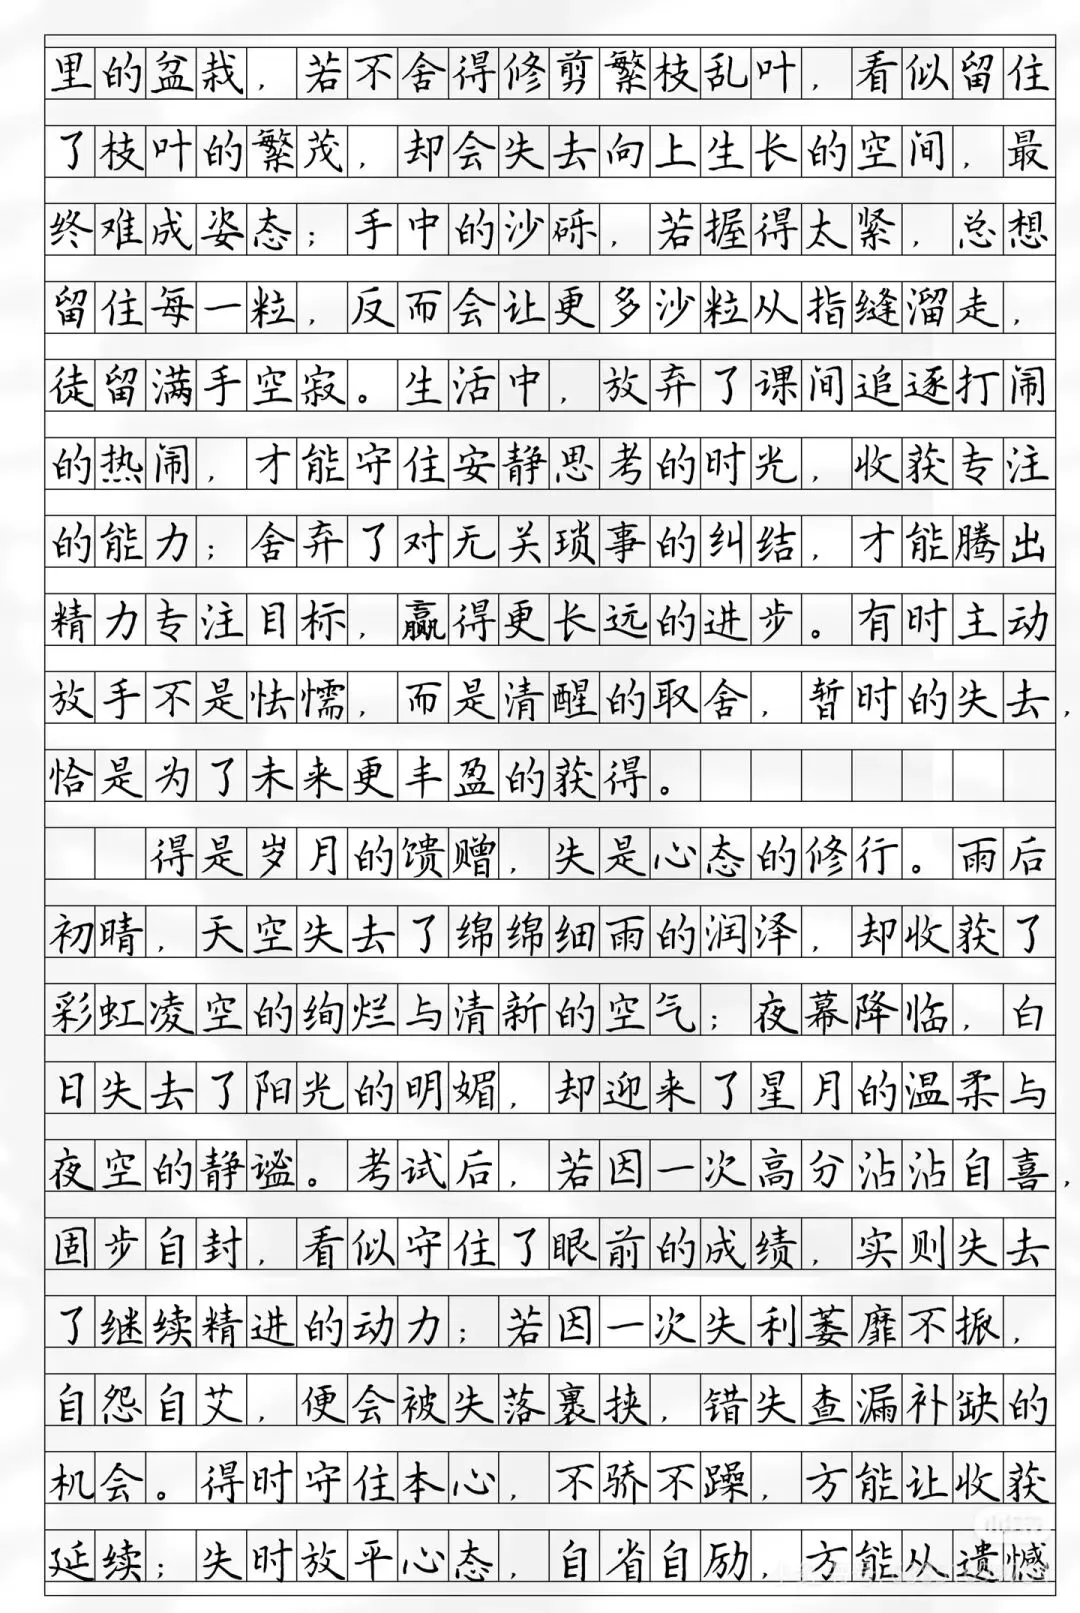 里的盆栽，若不舍得修剪繁枝乱叶，看似留住
了枝叶的繁茂，却会失去向上生长的空间，最
终难成姿态；手中的沙砾，若握得太紧，总想
留住每一粒，反而会让更多沙粒从指缝溜走，
徒留满手空寂。生活中，放弃了课间追逐打闹
的热闹，才能守住安静思考的时光，收获专注
的能力；舍弃了对无关琐事的纠结，才能腾出
精力专注目标，赢得更长远的进步。有时主动
放手不是怯懦，而是清醒的取舍，暂时的失去，
恰是为了未来更丰盈的获得。
得是岁月的馈赠，失是心态的修行。雨后
初晴，天空失去了绵绵细雨的润泽，却收获了
彩虹凌空的绚烂与清新的空气；夜幕降临，白
日失去了阳光的明媚，却迎来了星月的温柔与
夜空的静谧。考试后，若因一次高分沾沾自喜，
固步自封，看似守住了眼前的成绩，实则失去
了继续精进的动力；若因一次失利萎靡不振，
自怨自艾，便会被失落裹挟，错失查漏补缺的
机会。得时守住本心，不骄不躁，方能让收获
延续；失时放平心态，自省自励，方能从遗憾